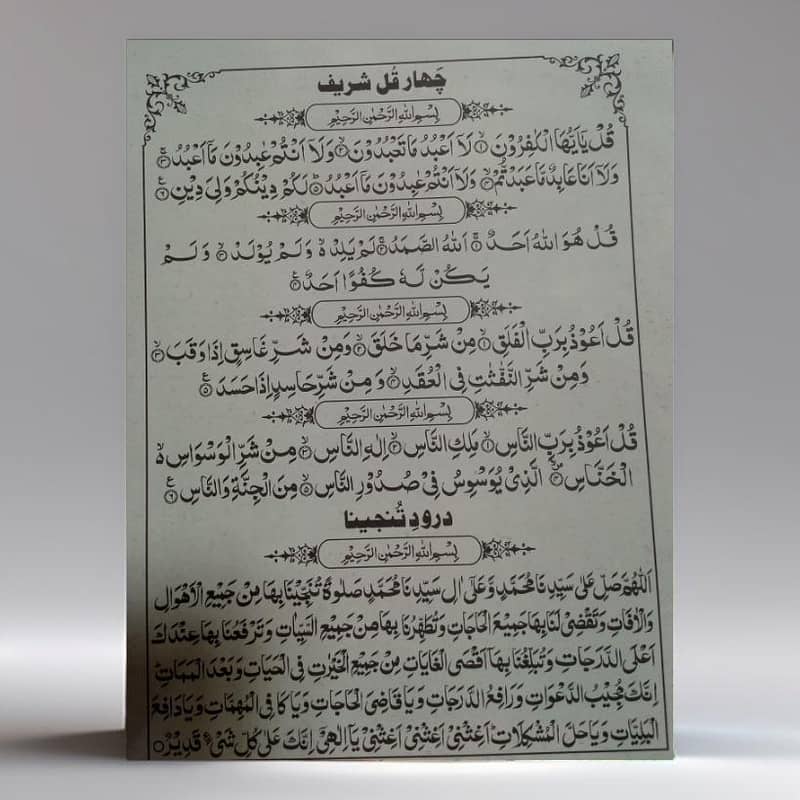 چهار قُل شریف
بِسْمِ اللهِ الرَّحْمٰنِ الرَّحِیْمِ
قُلْ یٰۤاَیُّهَا الْكٰفِرُوْنَ ۱ لَاۤ اَعْبُدُ مَا تَعْبُدُوْنَ ۲ وَلَاۤ اَنْتُمْ عٰبِدُوْنَ مَاۤ اَعْبُدُ ۳
وَلَاۤ اَنَا عَابِدٌ مَّا عَبَدْتُّمْ ۴ وَلَاۤ اَنْتُمْ عٰبِدُوْنَ مَاۤ اَعْبُدُ ۵ لَكُمْ دِیْنُكُمْ وَلِیَ دِیْنِ ۶
بِسْمِ اللهِ الرَّحْمٰنِ الرَّحِیْمِ
قُلْ هُوَ اللهُ اَحَدٌ ۱ اَللهُ الصَّمَدُ ۲ لَمْ یَلِدْ ۙ وَلَمْ یُوْلَدْ ۳ وَلَمْ
یَكُنْ لَّهٗ كُفُوًا اَحَدٌ ۴
بِسْمِ اللهِ الرَّحْمٰنِ الرَّحِیْمِ
قُلْ اَعُوْذُ بِرَبِّ الْفَلَقِ ۱ مِنْ شَرِّ مَا خَلَقَ ۲ وَمِنْ شَرِّ غَاسِقٍ اِذَا وَقَبَ ۳
وَمِنْ شَرِّ النَّفّٰثٰتِ فِی الْعُقَدِ ۴ وَمِنْ شَرِّ حَاسِدٍ اِذَا حَسَدَ ۵
بِسْمِ اللهِ الرَّحْمٰنِ الرَّحِیْمِ
قُلْ اَعُوْذُ بِرَبِّ النَّاسِ ۱ مَلِكِ النَّاسِ ۲ اِلٰهِ النَّاسِ ۳ مِنْ شَرِّ الْوَسْوَاسِ ۙ
الْخَنَّاسِ ۴ الَّذِیْ یُوَسْوِسُ فِیْ صُدُوْرِ النَّاسِ ۵ مِنَ الْجِنَّةِ وَالنَّاسِ ۶
درودِ تُنجینا
بِسْمِ اللهِ الرَّحْمٰنِ الرَّحِیْمِ
اَللّٰهُمَّ صَلِّ عَلٰی سَیِّدِنَا مُحَمَّدٍ وَّعَلٰۤی اٰلِ سَیِّدِنَا مُحَمَّدٍ صَلٰوةً تُنَجِّیْنَا بِهَا مِنْ جَمِیْعِ الْاَهْوَالِ
وَالْاٰفَاتِ وَتَقْضِیْ لَنَا بِهَا جَمِیْعَ الْحَاجَاتِ وَتُطَهِّرُنَا بِهَا مِنْ جَمِیْعِ السَّیِّاٰتِ وَتَرْفَعُنَا بِهَا عِنْدَكَ
اَعْلَی الدَّرَجَاتِ وَتُبَلِّغُنَا بِهَاۤ اَقْصَی الْغَایَاتِ مِنْ جَمِیْعِ الْخَیْرٰتِ فِی الْحَیَاتِ وَبَعْدَ الْمَمَاتِ
اِنَّكَ مُجِیْبُ الدَّعْوَاتِ وَرَافِعُ الدَّرَجَاتِ وَیَا قَاضِیَ الْحَاجَاتِ وَیَا كَافِیَ الْمُهِمَّاتِ وَیَا دَافِعَ
الْبَلِیَّاتِ وَیَا حَلَّ الْمُشْكِلَاتِ اَغِثْنِیْ اَغِثْنِیْ اَغِثْنِیْ یَاۤ اِلٰهِیْ اِنَّكَ عَلٰی كُلِّ شَیْءٍ قَدِیْرٌ